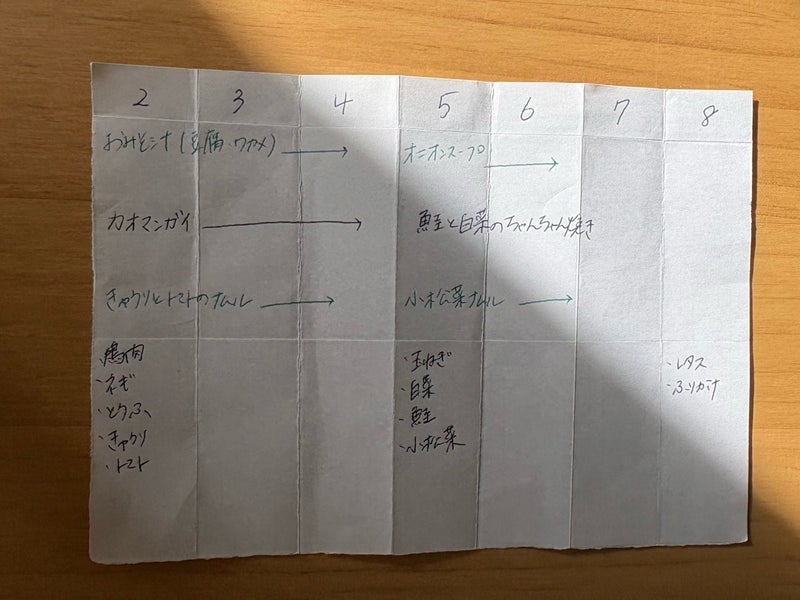 2 3 4 5 6 7 8
おみそ汁(豆腐・ワカメ) → オニオンスープ →
カオマンガイ → 鮭と白菜のちゃんちゃん焼き
きゅうりとトマトのナムル → 小松菜ナムル →
鶏肉
・ネギ
・とうふ
・きゅうり
・トマト
・玉ねぎ
・白菜
・鮭
・小松菜
・レタス
・ふりかけ